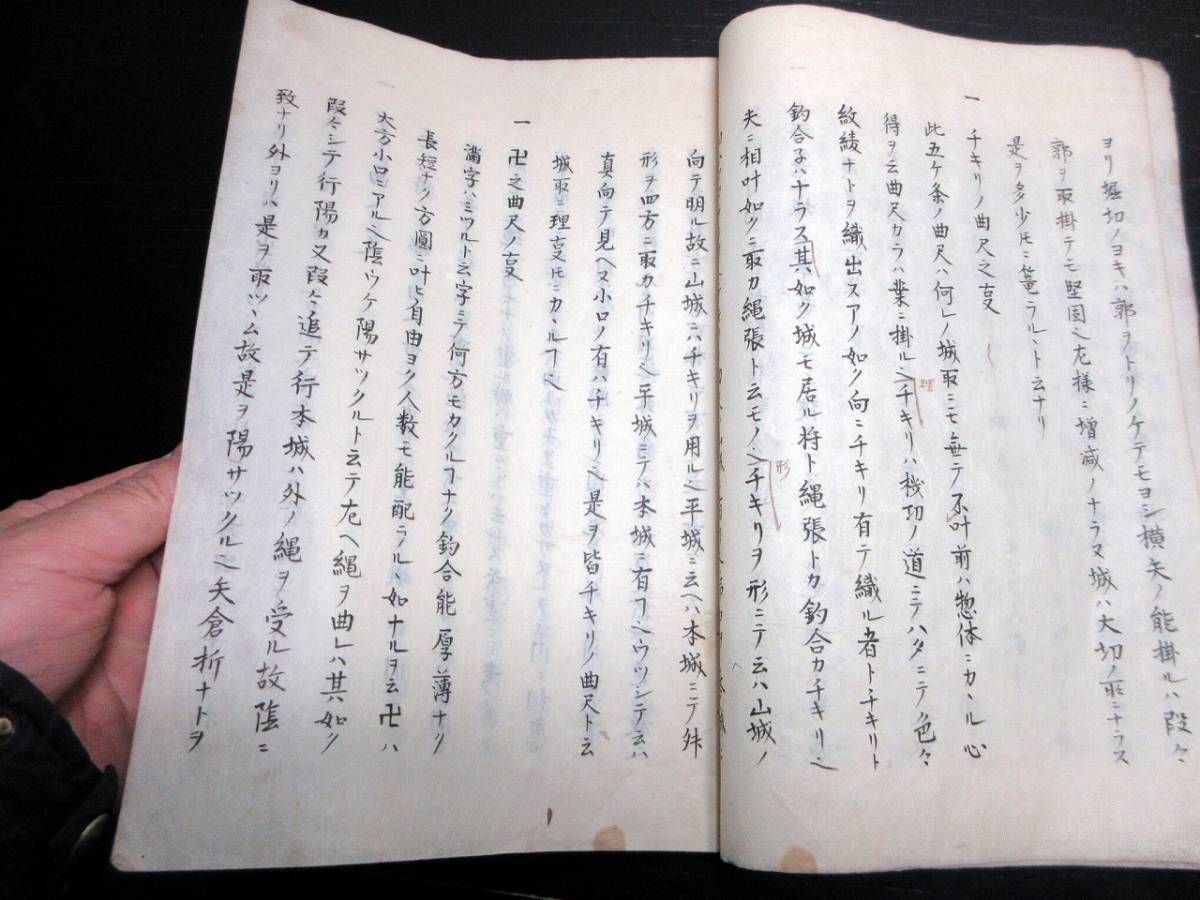 ヨリ堀切ノヨキハ郭ヲトリノケテモヨシ横矢ノ能掛ルハ段々
郭ヲ取掛テモ堅固〆左様ニ増减ノナラヌ城ハ大切ノ取ニナラス
是ヲ多少ニ篭ラルヽト云ナリ
一 チキリノ曲尺之㕝
此五ケ条ノ曲尺ハ何レノ城取ニモ無テ不叶前ハ惣体ニカヽル心
得ヲ云曲尺カラハ業ニ掛ル チキリハ機功ノ道ニテハタニテ色々
理
紋綾ナトヲ織出スアノ如ク向ニチキリ有テ織ル者トチキリト
釣合子ハナラス其如ク城モ居ル将ト縄張トカ釣合カチキリ
形
夫ニ相叶如クニ取カ縄張ト云モノ チキリヲ形ニテ云ハ山城ノ
向テ明ル故ニ山城ニハチキリヲ用ル 平城ニ云ヘハ本城ニテ外
形ヲ四方ニ取カチキリ 平城ニテハ本城ニ有 ウツシテ云ハ
真向テ見ヘヌ小口ノ有ハチキリ 是ヲ皆チキリノ曲尺ト云
城取ニ理㕝 ニカヽル
一 卍之曲尺ノ㕝
満字ハミツルト云字ニテ何方モカクル ナク釣合能厚薄ナク
長短ナク方圓ニ叶ヒ自由ヨク人数モ能配ラルヽ如ナルヲ云卍ハ
大方小口ニアル 陰ウケ陽サツクルト云テ左ヘ縄ヲ曲レハ其如ク
段々シテ行陽カ又段々追テ行本城ハ外ノ縄ヲ受ル故陰ニ
致ナリ外ヨリハ是ヲ取ツヽム故是ヲ陽サツクル 矢倉折ナトヲ